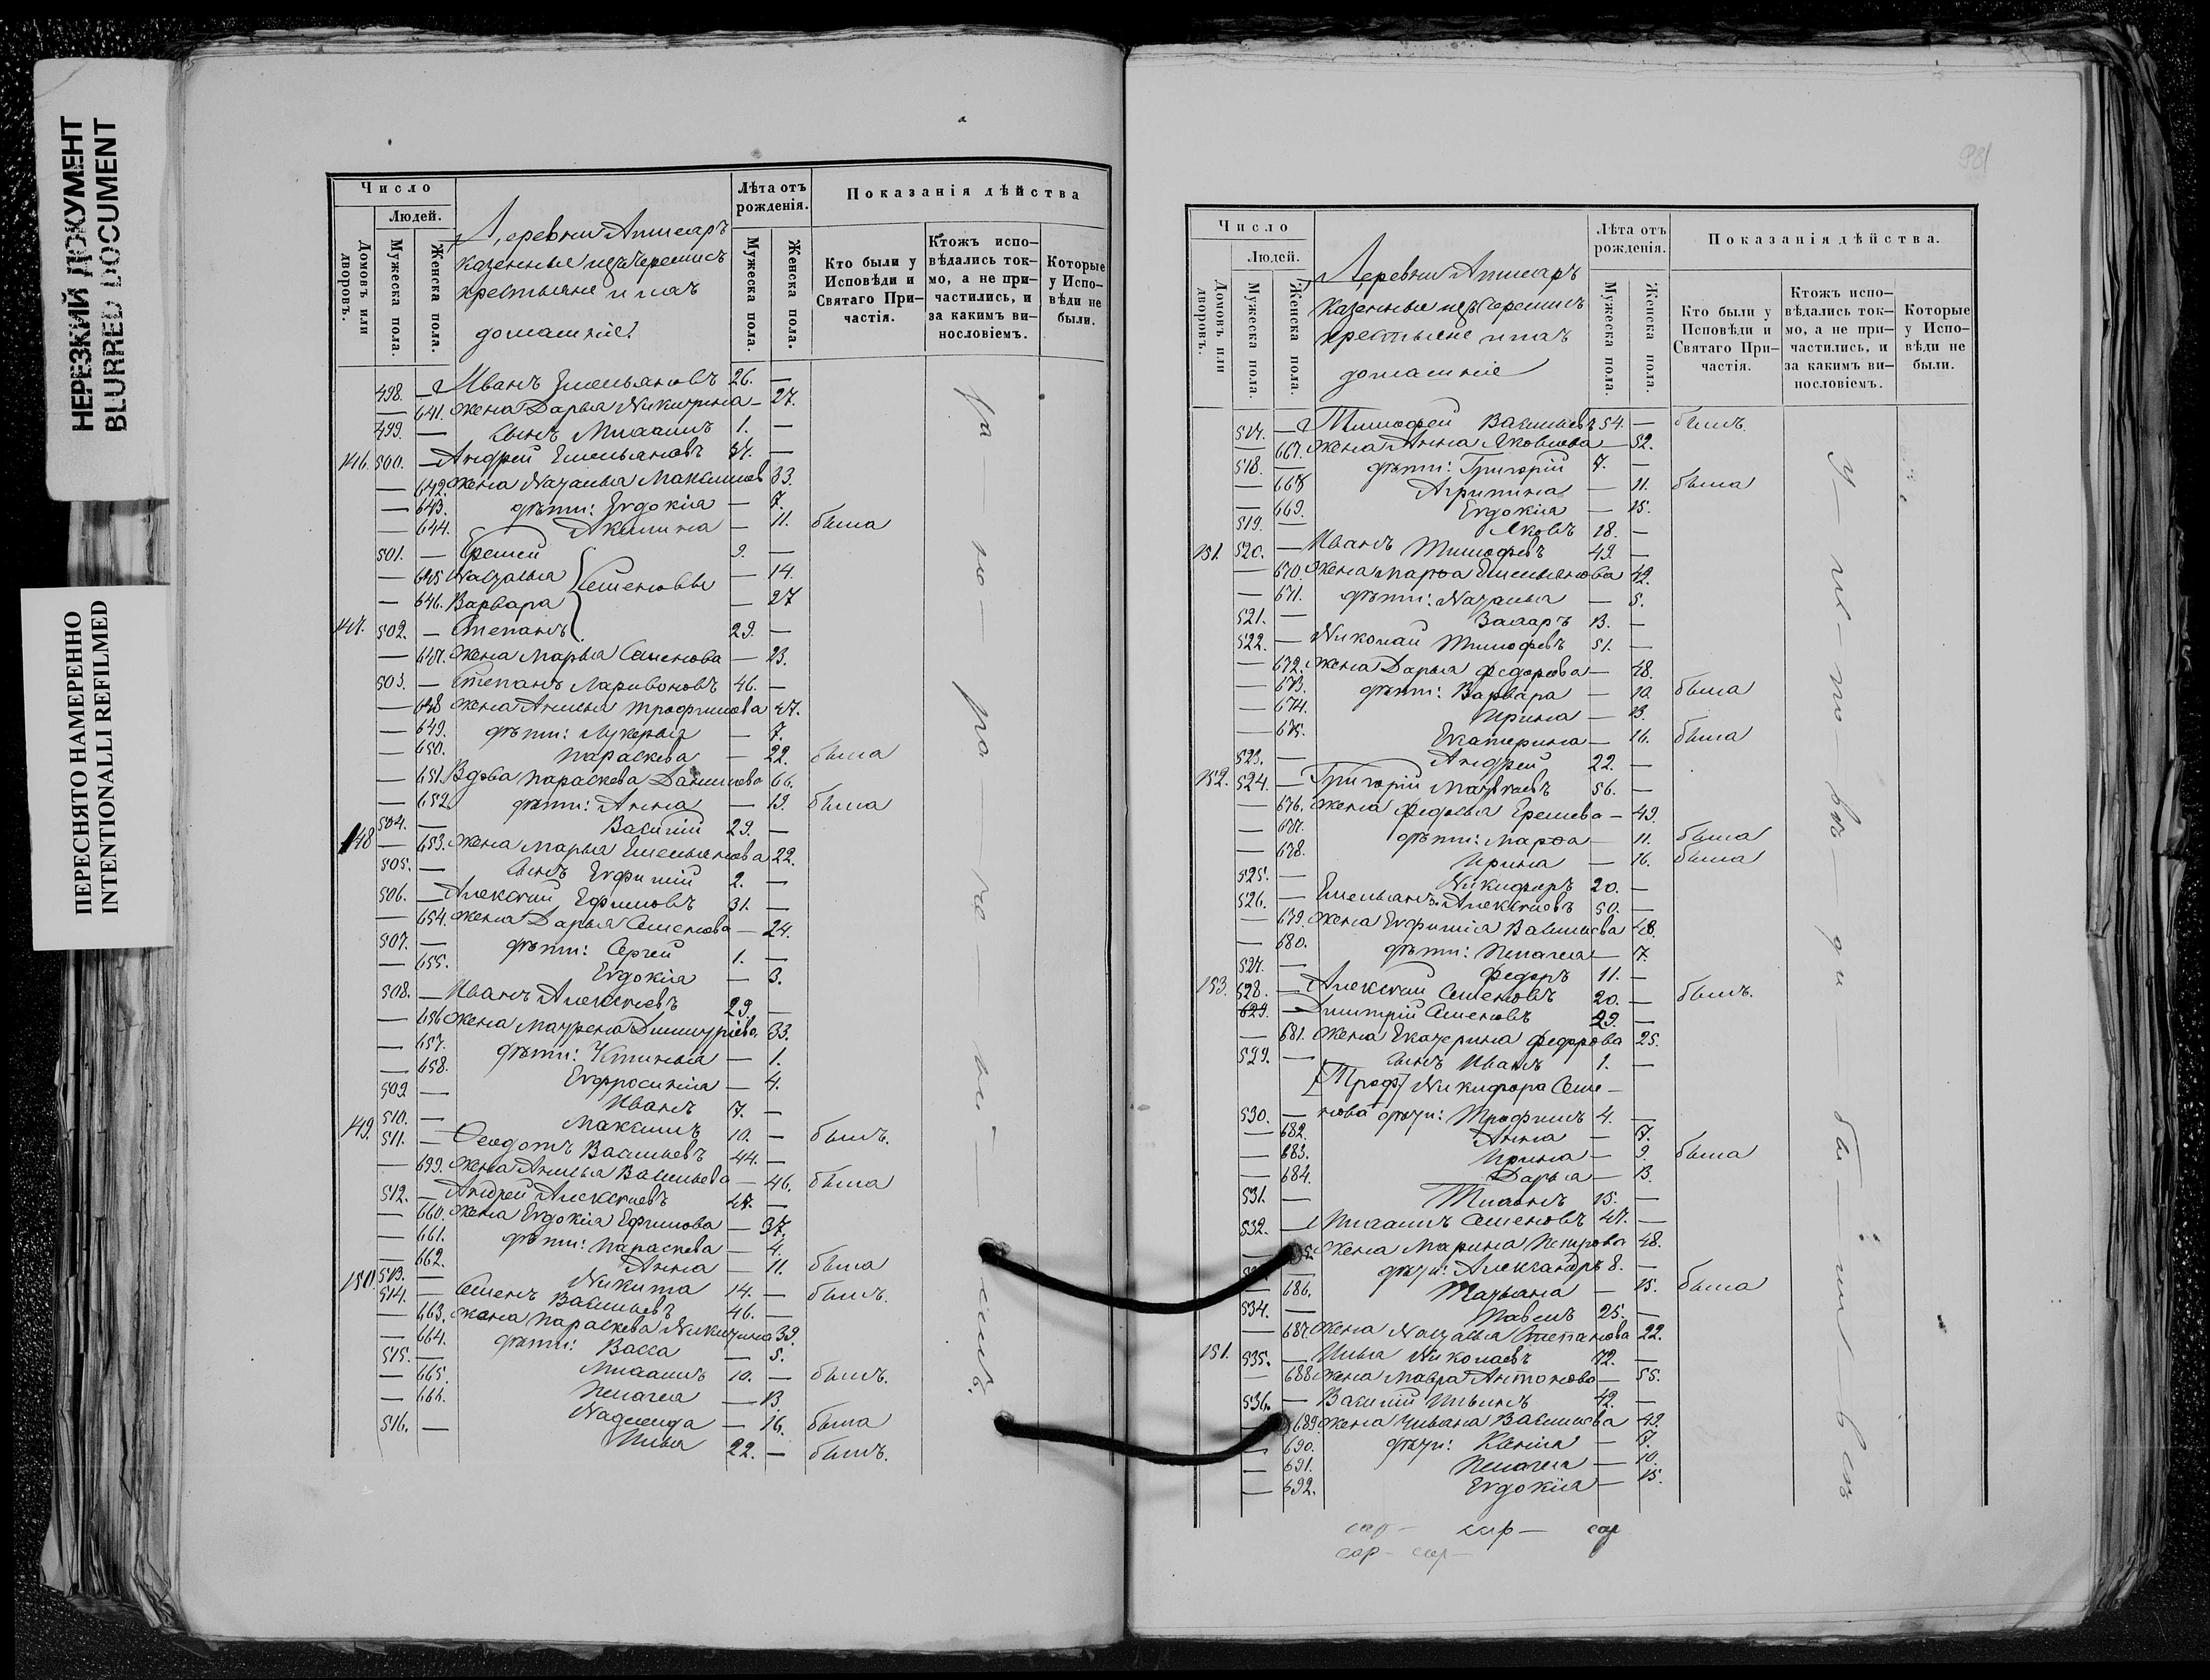 НЕРЕЗКИЙ ДОКУМЕНТ
BLURRED DOCUMENT
ПЕРЕСНЯТО НАМЕРЕННО
INTENTIONALLI REFILMED
Число
Людей.
Домовъ или дворовъ.
Мужеска пола.
Женска пола.
Деревни Апшеаръ
казенные изъ черемисъ
крестьяне и ихъ
домашніе
Лѣта отъ рожденія.
Мужеска пола.
Женска пола.
Показанія дѣйства
Кто были у Исповѣди и Святаго Причастія.
Ктожъ исповѣдались токмо, а не причастились, и за какимъ винословіемъ.
Которые у Исповѣди не были.
498. — Иванъ Емельяновъ 26. —
— 641. жена Дарья Никитина — 27.
499. — сынъ Михаилъ 1. —
146. 500. — Андрей Емельяновъ 37. —
— 642. жена Наталья Максимов 33.
— 643. дѣти: Евдокія — 7.
— 644. Акилина — 11. была
501. — Еремей 9. —
— 645 Наталья Семеновы — 14.
— 646. Варвара — 27
147. 502. — Степанъ 29. —
— 647. жена Марья Семенова — 23.
503. — Степанъ Ларивоновъ 46. —
— 648 жена Анисья Трофимова 47.
— 649. дѣти: Лукерья — 7.
— 650. Параскева — 22. была
— 651. Вдова Параскева Данилова 66.
— 652. дѣти: Анна — 19. была
504. — Василій 29. —
148 — 653. жена Марья Емельянова 22.
505. — сынъ Евфимій 2. —
506. — Алексѣй Ефимовъ 31. —
— 654. жена Дарья Семенова — 24.
507. — дѣти: Сергей 1. —
— 655. Евдокія — 3.
508. — Иванъ Алексѣевъ 29. —
— 656 жена Матрена Димитріева 33.
— 657. дѣти: Устинья — 1.
— 658. Евфросинія — 4.
509 — Иванъ 7. —
510. — Максимъ 10. — былъ.
149. 511. — Феодотъ Васильевъ 44. —
— 699. жена Анисья Васильева — 46. была
512. — Андрей Алексѣевъ 47. —
— 660. жена Евдокія Ефимова — 37.
— 661. дѣти: Параскева — 4.
— 662. Анна — 11. была
513. — Никита 14. — былъ.
150. 514. — Семенъ Васильевъ 46. —
— 663. жена Параскева Никитина 39.
— 664. дѣти: Васса — 5.
515. — Михаилъ 10. — былъ.
— 665. Пелагея — 13.
— 666. Надежда — 16. была
516. — Илья 22. — былъ.
Число
Людей.
Домовъ или дворовъ.
Мужеска пола
Женска пола.
Деревни Апшеаръ
казенные изъ черемисъ
крестьяне и ихъ
домашніе
Лѣта отъ рожденія.
Мужеска пола.
Женска пола.
Показанія дѣйства.
Кто были у Исповѣди и Святаго Причастія.
Ктожъ исповѣдались токмо, а не причастились, и за какимъ винословіемъ.
Которые у Исповѣди не были.
517. — Тимофей Васильевъ 54. — былъ.
— 667. жена Анна Яковлева — 52.
518. — дѣти: Григорій 7. —
— 668 Агрипина — 11. была
— 669. Евдокія — 15.
519. — Яковъ 18. —
151. 520. — Иванъ Тимофевъ 49. —
— 670. жена Марѳа Емельянова 42.
— 671. дѣти: Наталья — 5.
521. — Захаръ 13. —
522. — Николай Тимофевъ 51. —
— 672. жена Дарья Федорова — 48.
— 673. дѣти: Варвара — 10. была
— 674. Ирина — 13.
— 675. Екатерина — 16. была
523. — Андрей 22. —
152. 524. — Григорій Матвѣевъ 56. —
— 676. жена Федосья Еремева — 49.
— 677. дѣти: Марѳа — 11. была
— 678. Ирина — 16. была
525. — Никифоръ 20. —
526. — Емельянъ Алексѣевъ 50. —
— 679. жена Евфимія Васильева 48.
— 680. дѣти: Пелагея — 7.
527. — Федоръ 11. —
153. 528. — Алексѣй Семеновъ 20. — былъ.
629. — Димитрій Семеновъ 29. —
— 681. жена Екатерина Федорова 25.
529. — сынъ Иванъ 1. —
[Троф] Никифора Семе-
530. — нова дѣти: Трофимъ 4. —
— 682. Анна — 7.
— 683. Ирина — 9. была
— 684. Дарья — 13.
531. — Тихонъ 15. —
532. — Михаилъ Семеновъ 47. —
жена Марина Петрова 48.
дѣти: Александръ 8. —
— 686. Татьяна — 15. была
534. — Павелъ 25. —
— 687. жена Наталья Степанова 22.
151. 535. — Илья Николаевъ 72. —
— 688 жена Мавра Антонова — 55.
536. — Василій Ильинъ 42. —
— 689. жена Ульяна Васильева 49.
— 690. дѣти: Ксенія — 7.
— 691. Пелагея — 10.
— 692. Евдокія — 15.